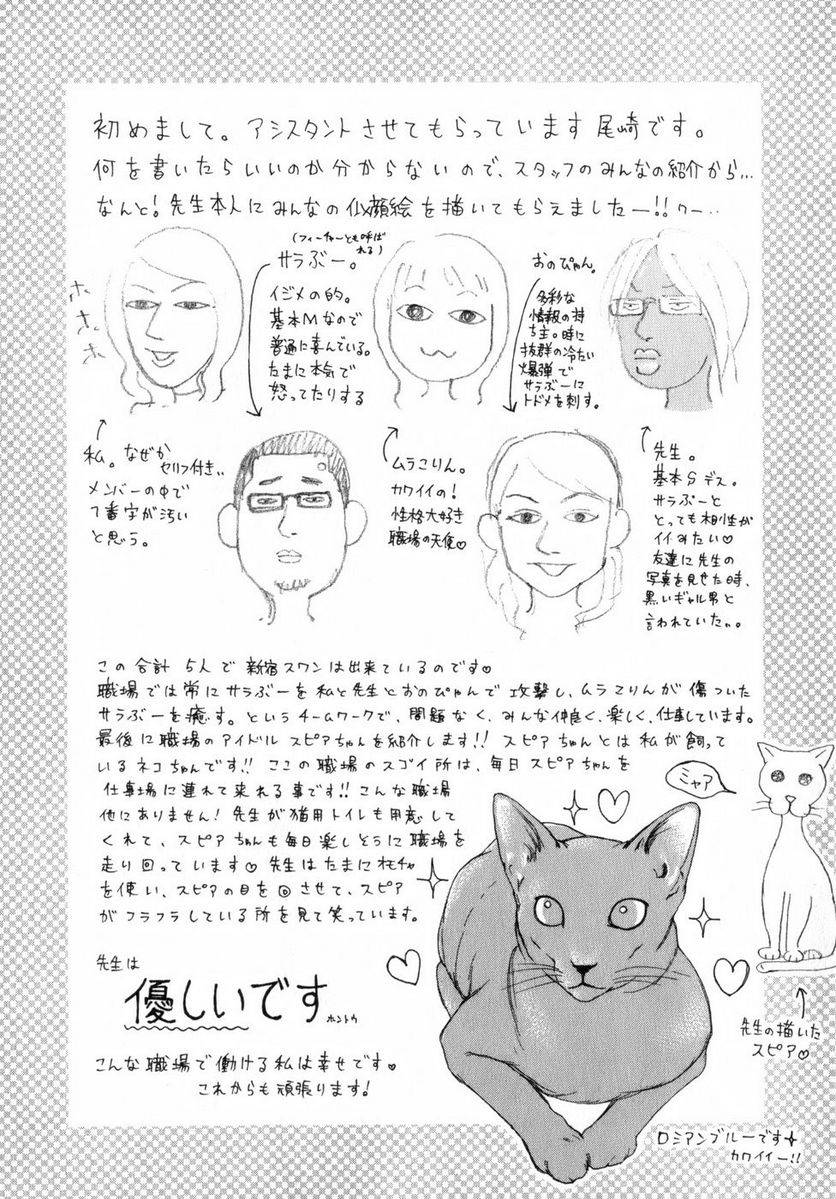 初めまして。アシスタントさせてもらっています尾崎です。
何を書いたらいいのか分からないので、スタッフのみんなの紹介から…
なんと!先生本人にみんなの似顔絵を描いてもらえましたー!!ワー…
ホ
ホ
ホ
↑
私。なぜか
セリフ付き…
メンバーの中で
1番字が汚い
と思う。
(フィーチャーとも呼ば
れる)
サラぶー。
イジメの的。
基本Mなので
普通に喜んでいる。
たまに本気で
怒ってたりする
ムラこりん。
カワイイの!
性格大好き
職場の天使♡
おのぴゃん。
多彩な
情報の持
ち主。時に
抜群の冷たい
爆弾で
サラぶーに
トドメを刺す。
先生。
基本Sデス。
サラぶーと
とっても相性が
イイみたい♡
友達に先生の
写真を見せた時、
黒いギャル男と
言われていた。。
この合計5人で新宿スワンは出来ているのです♡
職場では常にサラぶーを私と先生とおのぴゃんで攻撃し、ムラこりんが傷ついた
サラぶーを癒す。というチームワークで、問題なく、みんな仲良く、楽しく、仕事しています。
最後に職場のアイドルスピアちゃんを紹介します!!スピアちゃんとは私が飼って
いるネコちゃんです!!ここの職場のスゴイ所は、毎日スピアちゃんを
仕事場に連れて来れる事です!!こんな職場
他にありません!先生が猫用トイレも用意して
くれて、スピアちゃんも毎日楽しそうに職場を
走り回っています♡先生はたまにオモチャ
を使い、スピアの目を◎させて、スピア
がフラフラしている所を見て笑っています。
ミャア
先生は
優しいです
ホントウ
こんな職場で働ける私は幸せです♡
これからも頑張ります!
↑
先生の描いた
スピア♡
ロシアンブルーです
カワイイー!!